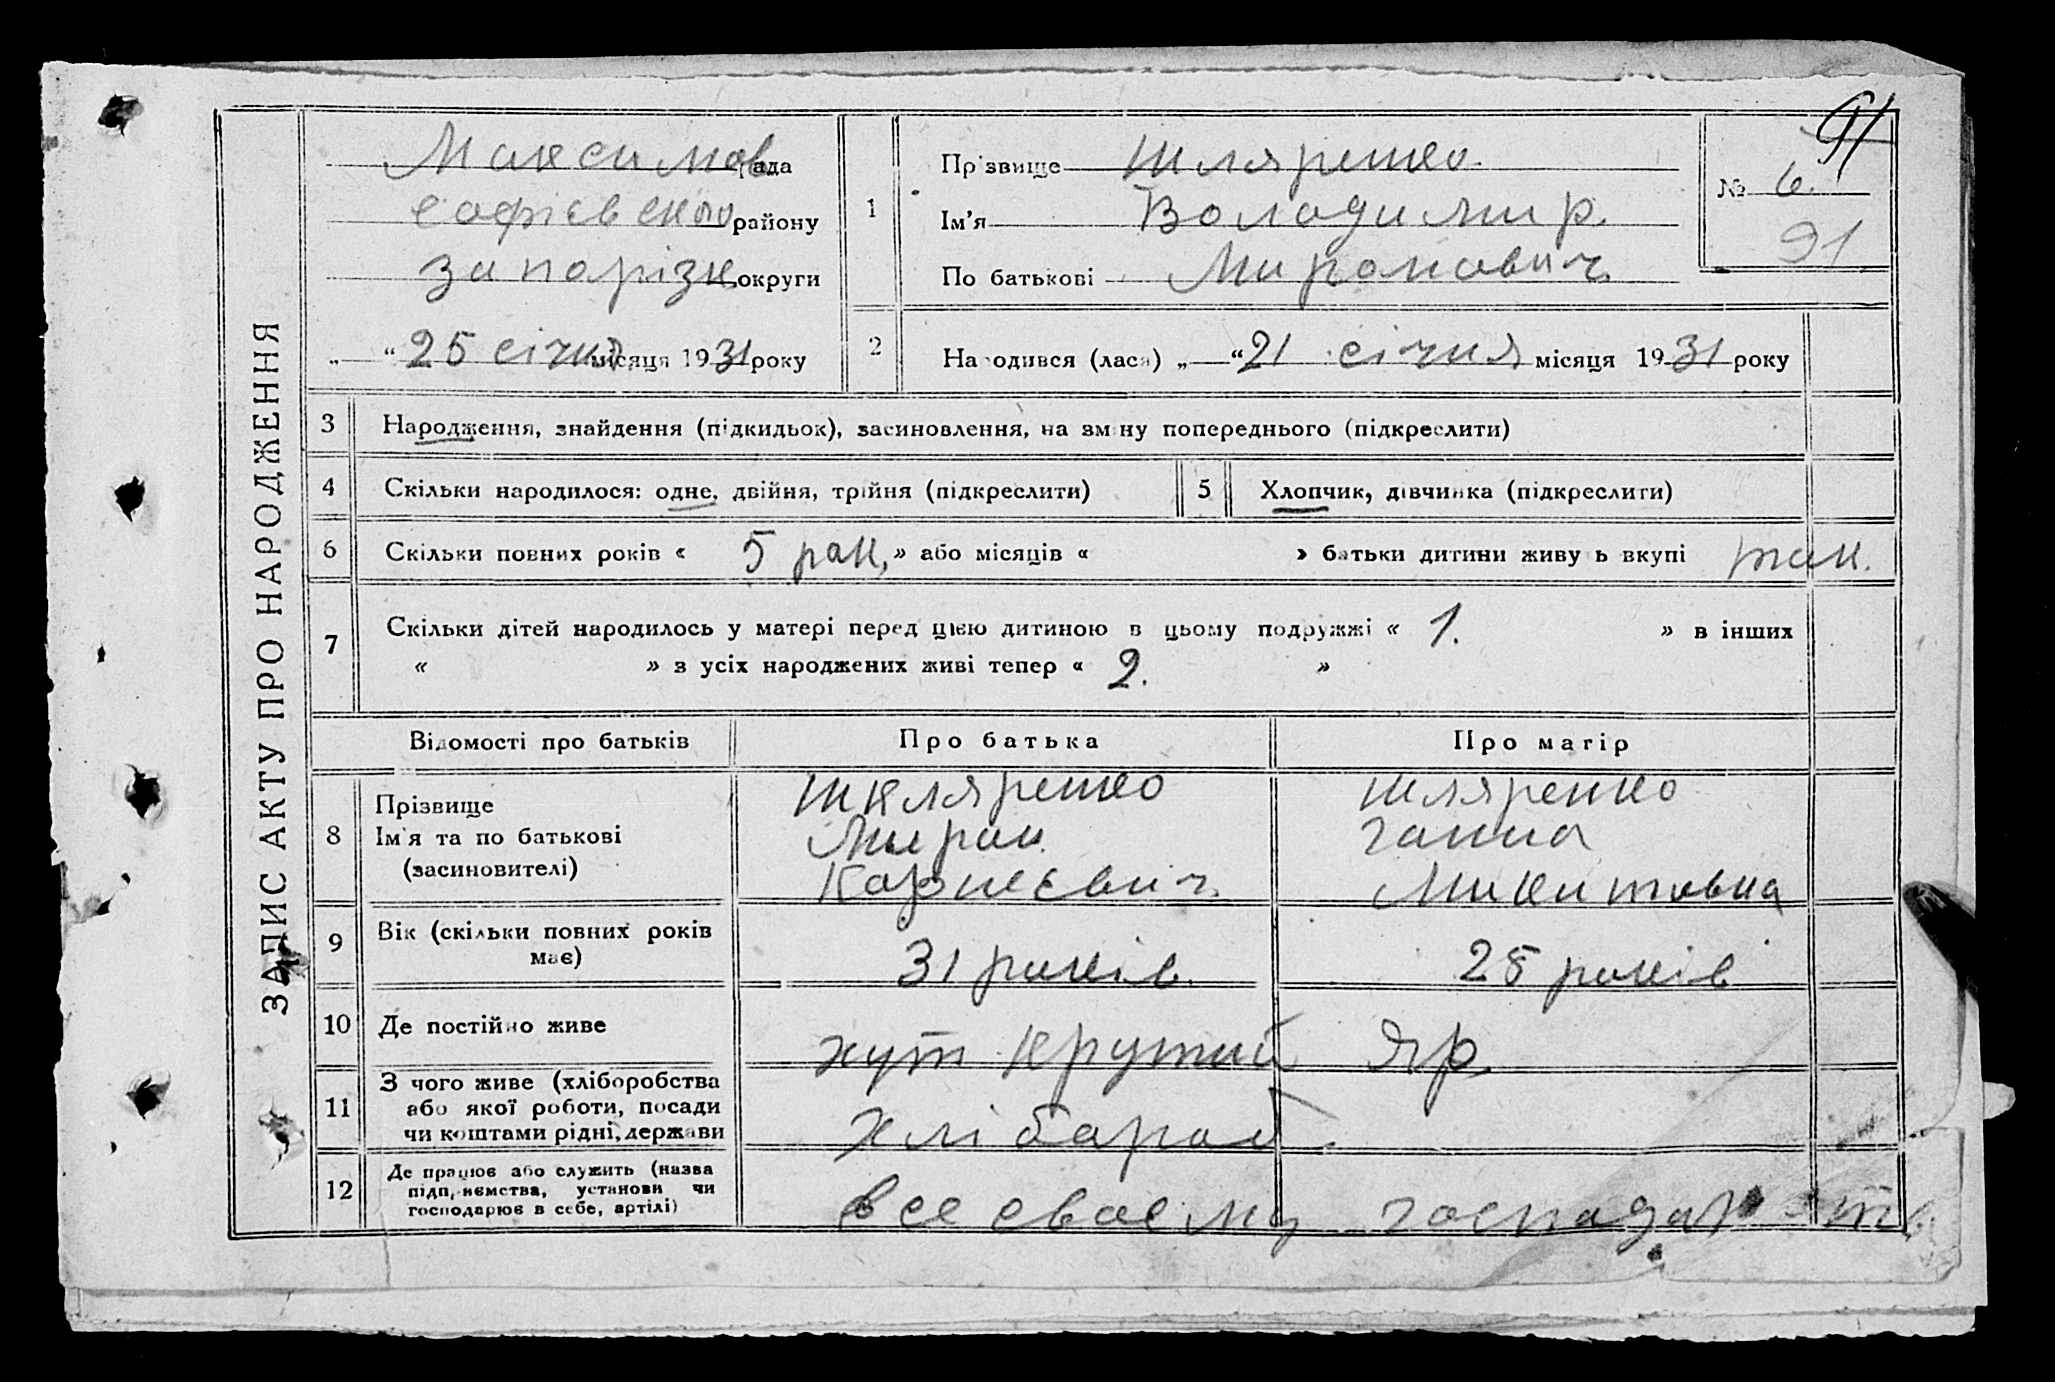 91
Максимов рада
Софієвского району
Запорізк округи
„ “ 25 січня місяця 1931 року
1
Прізвище Шляренко.
Ім’я Володимир.
По батькові Миронович
№ 6.
91
2
Народився (лася) „ “ 21 січня місяця 1931 року
ЗАПИС АКТУ ПРО НАРОДЖЕННЯ
3 Народження, знайдення (підкидьок), засиновлення, на зміну попереднього (підкреслити)
4 Скільки народилося: одне, двійня, трійня (підкреслити) 5 Хлопчик, дівчинка (підкреслити)
6 Скільки повних років « 5 рок, » або місяців « » батьки дитини живуть вкупі так.
7 Скільки дітей народилось у матері перед цією дитиною в цьому подружжі « 1. » в інших
« » з усіх народжених живі тепер « 2. »
Відомості про батьків Про батька Про матір
8 Прізвище Шкляренко Шляренко
Ім’я та по батькові Мирон Ганна
(засиновителі) Корнієвич Микитовна
9 Вік (скільки повних років має) 31 років. 25 років
10 Де постійно живе хут Крутий Яр
11 З чого живе (хліборобства
або якої роботи, посади
чи коштами рідні, держави хлібароб.
12 Де працює або служить (назва
підприємства, установи чи
господарює в себе, артілі) все своєму